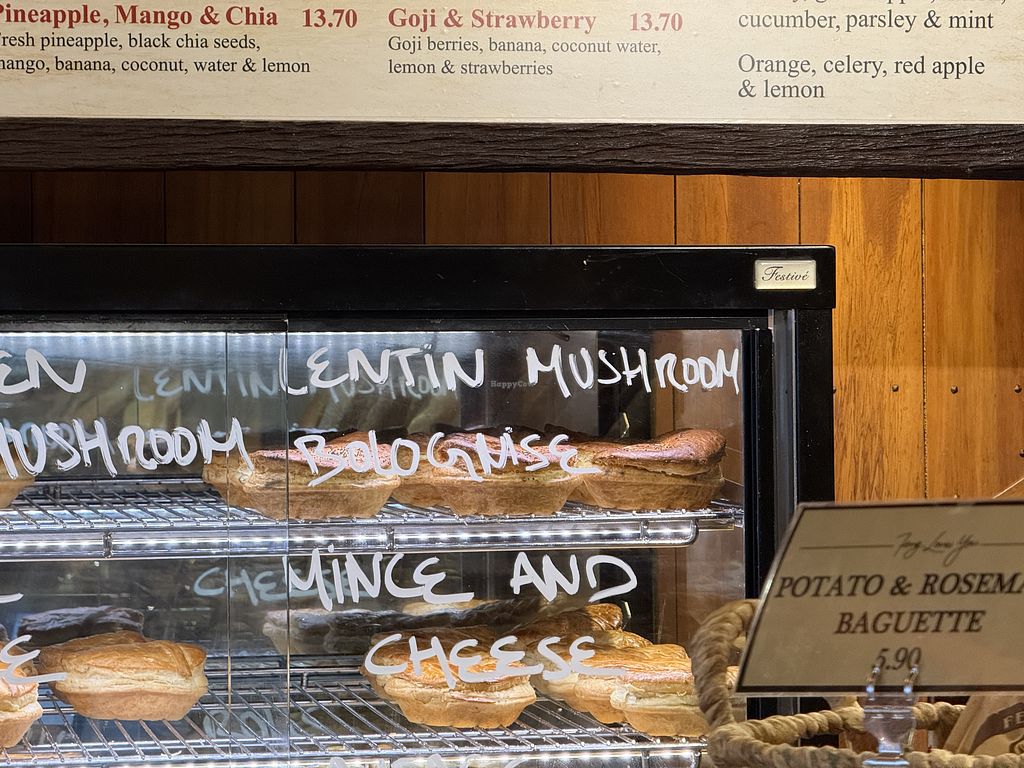 Pineapple, Mango & Chia 13.70
Fresh pineapple, black chia seeds,
mango, banana, coconut, water & lemon
Goji & Strawberry 13.70
Goji berries, banana, coconut water,
lemon & strawberries
cucumber, parsley & mint
Orange, celery, red apple
& lemon
Festivé
EN
MUSHROOM
LENTIN MUSHROOM
BOLOGNISE
MINCE AND
CHEESE
HappyCow
POTATO & ROSEMA
BAGUETTE
5.90